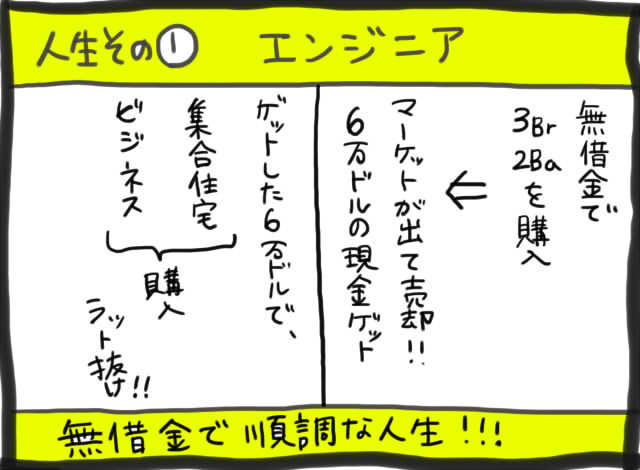 人生その① エンジニア
無借金で
3Br
2Baを購入
マーケットが出て売却!!
6万ドルの現金ゲット
ゲットした6万ドルで、
集合住宅
ビジネス
購入
ラット抜け!!
無借金で順調な人生!!!